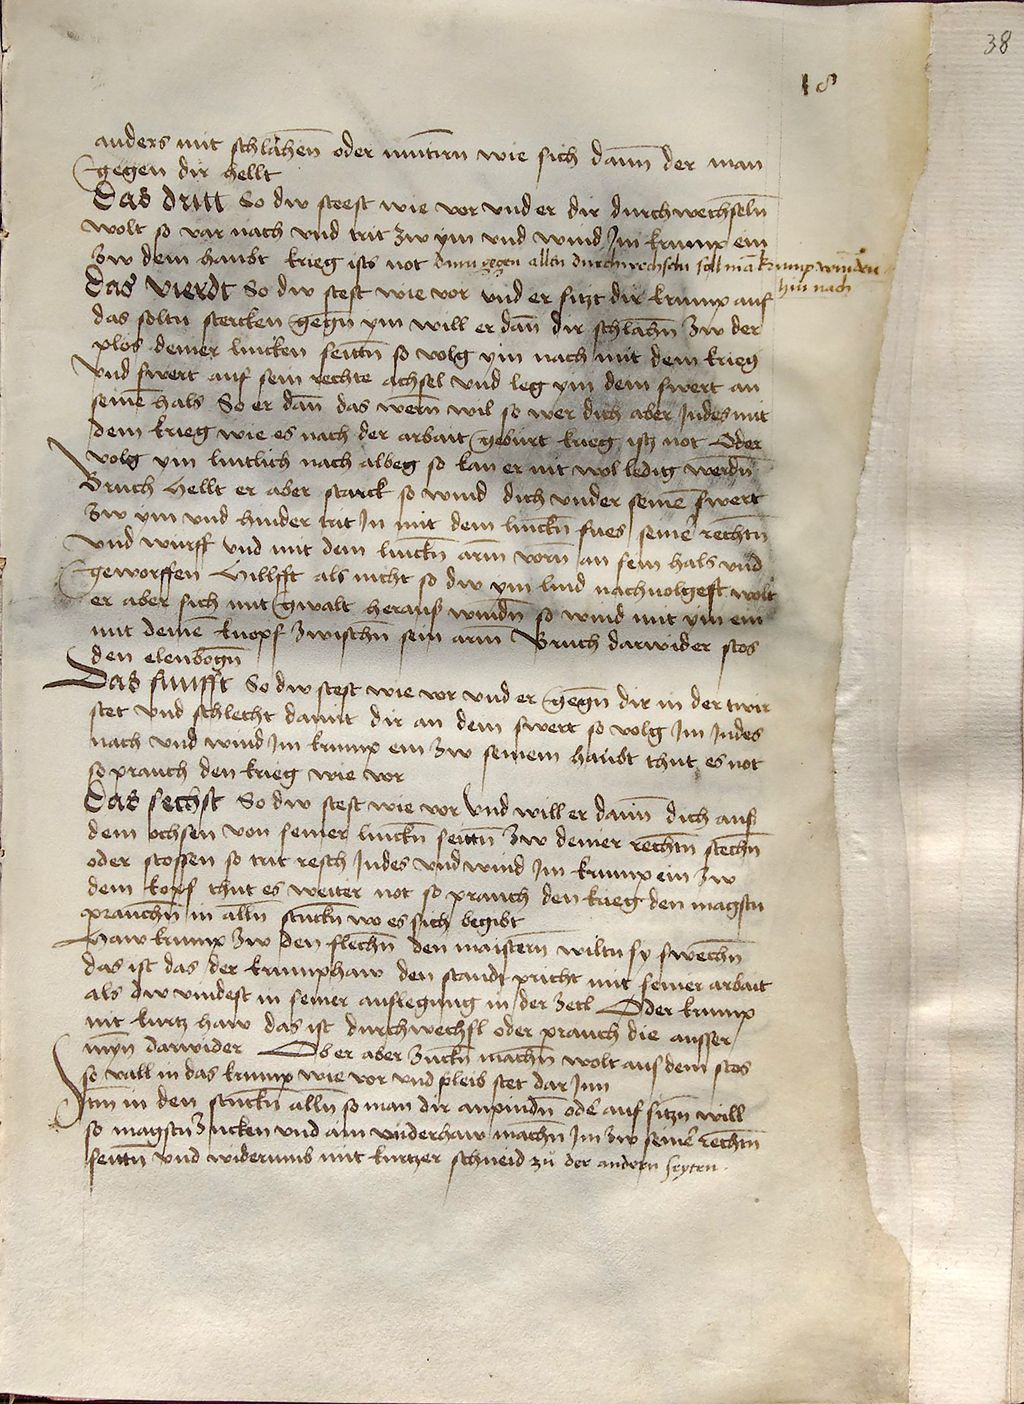 38
18
anders mit schlahen̄ oder mutirn wie sich dann der man
gegen dir hellt
Das dritt So dw steest wie vor vnd er dir durchwechseln̄
wolt so var nach vnd trit zw ym vnd wind Im krump ein
zw dem haubt krieg ists not dann gegen allen durchwechseln soll mā krump winden
hin nach
Das vierdt So dw stest wie vor vnd er sitzt dir krump auf
das soltu stercken gegn̄ ym will er dan̄ dir schlahn̄ zw der
plos deiner lincken seittn̄ so volg ym nach mit dem krieg
vnd swert auf sein rechte achsel vnd leg ym dein swert an
seinē hals So er dan̄ das wern̄ wil so wer dich aber Indes mit
dem krieg wie es nach der arbait gebürt krieg istz not Oder
volg ym lintlich nach albeg so kan er nit wol ledig werdn̄
Bruch Hellt er aber starck so wind dich vnder seinē swert
zw ym vnd hinder trit In mit dem linckn̄ fues seinē rechtn̄
vnd wurff vnd mit dem linckn̄ arm vorn̄ an sein hals vnd
geworffen Hillfft als nicht so dw ym lind nachuolgest wolt
er aber sich mit gwalt herauß windn̄ so wind mit ym ein
mit deinē knopf zwischn̄ sein arm Bruch darwider stos
den elenbogn̄
Das funfft So dw stest wie vor vnd er gegn̄ dir in der twir
stet vnd schlecht damit dir an dem swert so volg Im Indes
nach vnd wind Im krump ein zw seinem haubt thut es not
so prauch den krieg wie vor
Das sechst So dw stest wie vor vnd will er dann dich auß
dem ochsen von seiner linckn̄ seittn̄ zw deiner rechtn̄ stechn̄
oder stossen so trit resch Indes vnd wind Im krump ein zw
dem kopf thut es weiter not so prauch den krieg den magstu
prauchn̄ in alln̄ stuckn̄ wo es sich begibt
Haw krump zw den flechn̄ den maistern̄ wiltu sy swechn̄
das ist das der krumphaw den standt pricht mit seiner arbait
als dw vindest in seiner auslegung in der zetl Oder krump
nit kurtz haw das ist durchwechsl oder prauch die ausser
myn̄ darwider Ob er aber zuckn̄ machn̄ wolt aus dem stos
so vall in das krump wie vor vnd pleib stet dar Inn
Itm̄ in den stuckn̄ alln̄ so man dir anpindn̄ odē auf sitzn̄ will
so magstu zucken vnd ain vnderhaw machn̄ Im zw seinē rechtn̄
seittn̄ vnd widerumb mit kurtzer schneid zu der andern seyten